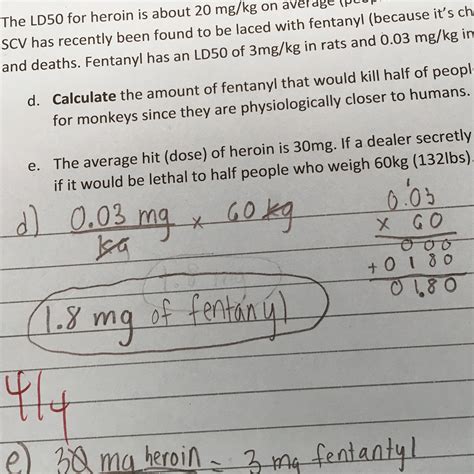 The LD50 for heroin is about 20 mg/kg on average
SCV has recently been found to be laced with fentanyl (because it's ch
and deaths. Fentanyl has an LD50 of 3mg/kg in rats and 0.03 mg/kg in
d. Calculate the amount of fentanyl that would kill half of peopl
for monkeys since they are physiologically closer to humans.
e. The average hit (dose) of heroin is 30mg. If a dealer secretly
if it would be lethal to half people who weigh 60kg (132lbs).
d) 0.03 mg x 60 kg
kg
1
0.03
x 60
000
+0180
0180
1.8 mg of fentanyl
4/4
e) 30 mg heroin = 3 mg fentantyl